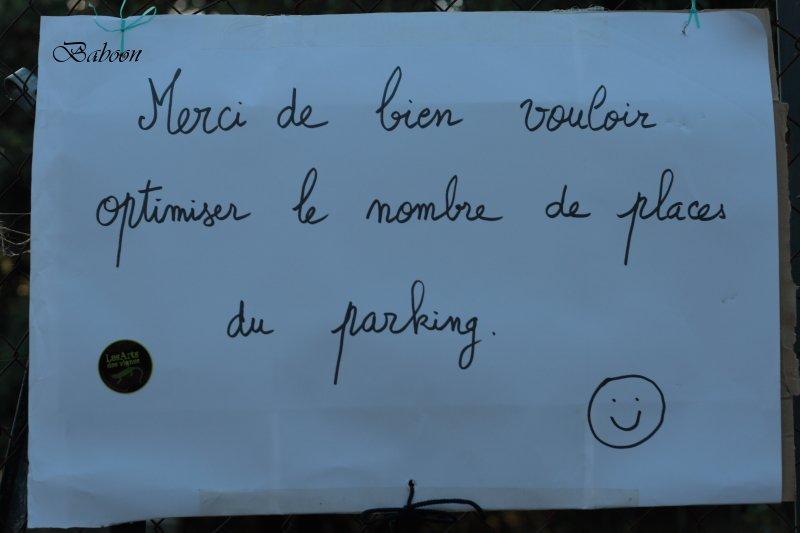 Baboon
Merci de bien vouloir
optimiser le nombre de places
du parking.
Les Arts
des vignes